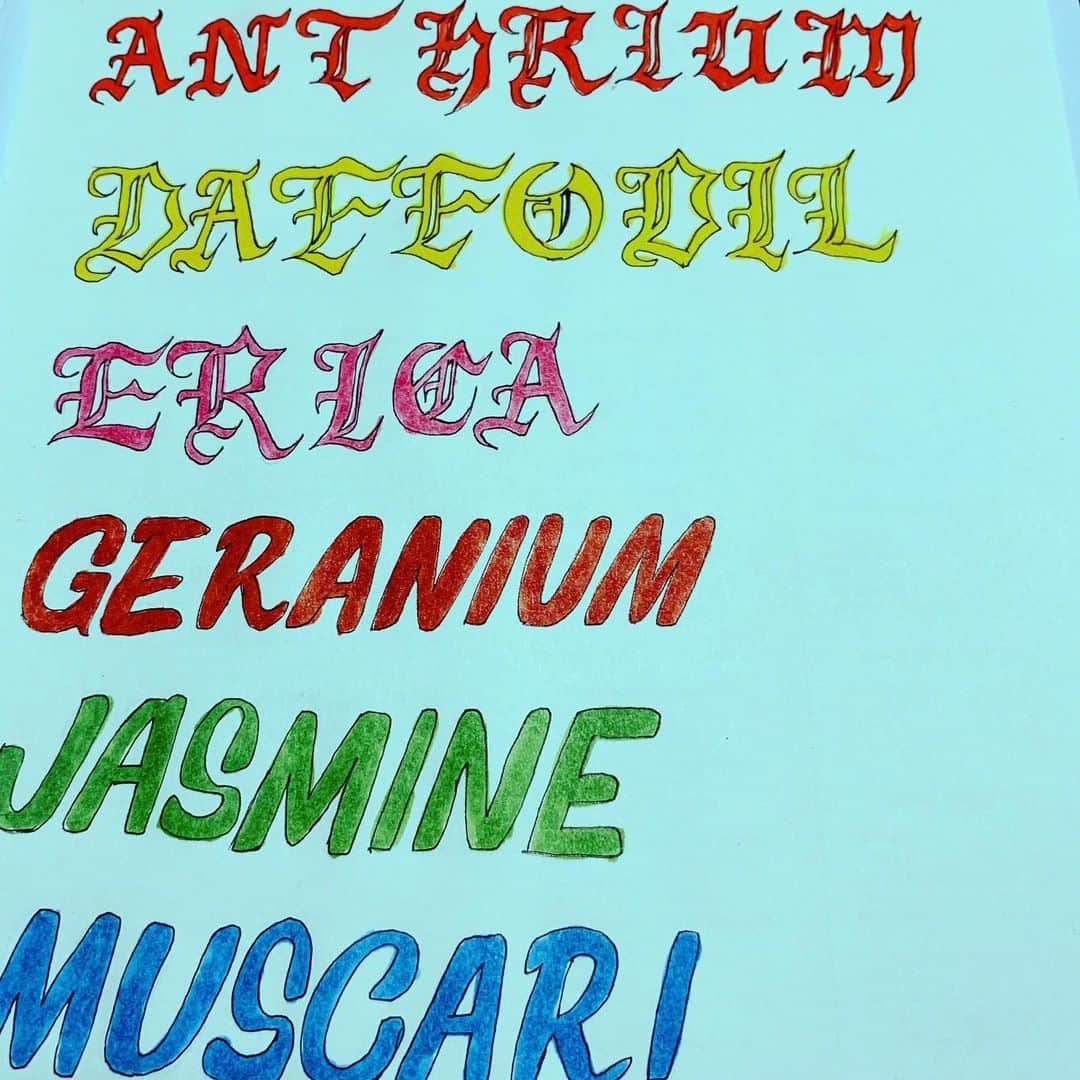 ANTHRIUM
DAFFODIL
ERICA
GERANIUM
JASMINE
MUSCARI